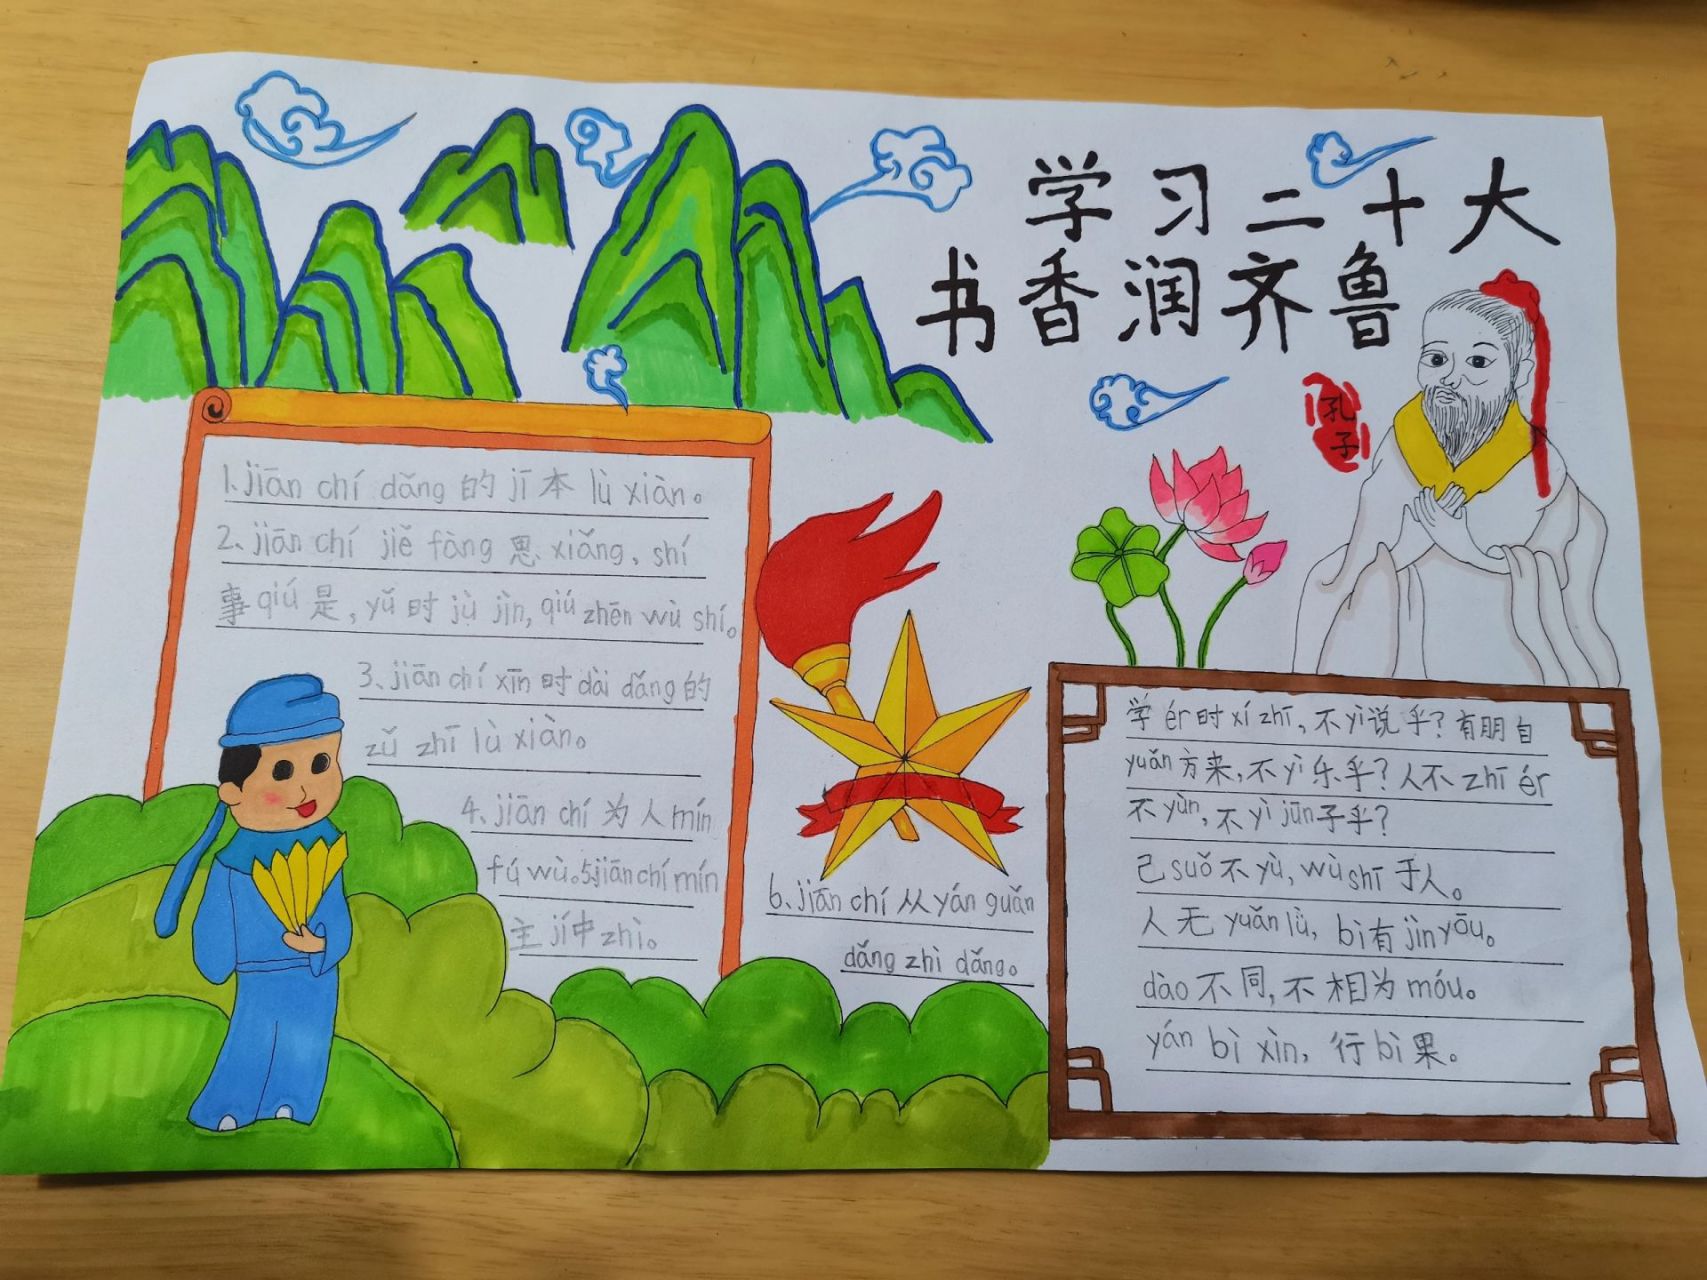 学习二十大
书香润齐鲁
孔子
1、jiān chí dǎng 的 jī 本 lù xiàn。
2、jiān chí jiě fàng 思 xiǎng，shí
事 qiú 是，yǔ 时 jù jìn，qiú zhēn wù shí。
3、jiān chí xīn 时 dài dǎng 的
zǔ zhī lù xiàn。
4、jiān chí 为人 mín
fú wù。5、jiān chí mín
主 jí 中 zhì。
6、jiān chí 从 yán guǎn
dǎng zhì dǎng。
学 ér 时 xí zhī，不 yì 说乎？有朋自
yuǎn 方来，不 yì 乐乎？人不 zhī ér
不 yùn，不 yì jūn 子乎？
己 suǒ 不 yù，wù shī 于人。
人无 yuǎn lǜ，bì 有 jìn yōu。
dào 不同，不相为 móu。
yán bì xìn，行 bì 果。